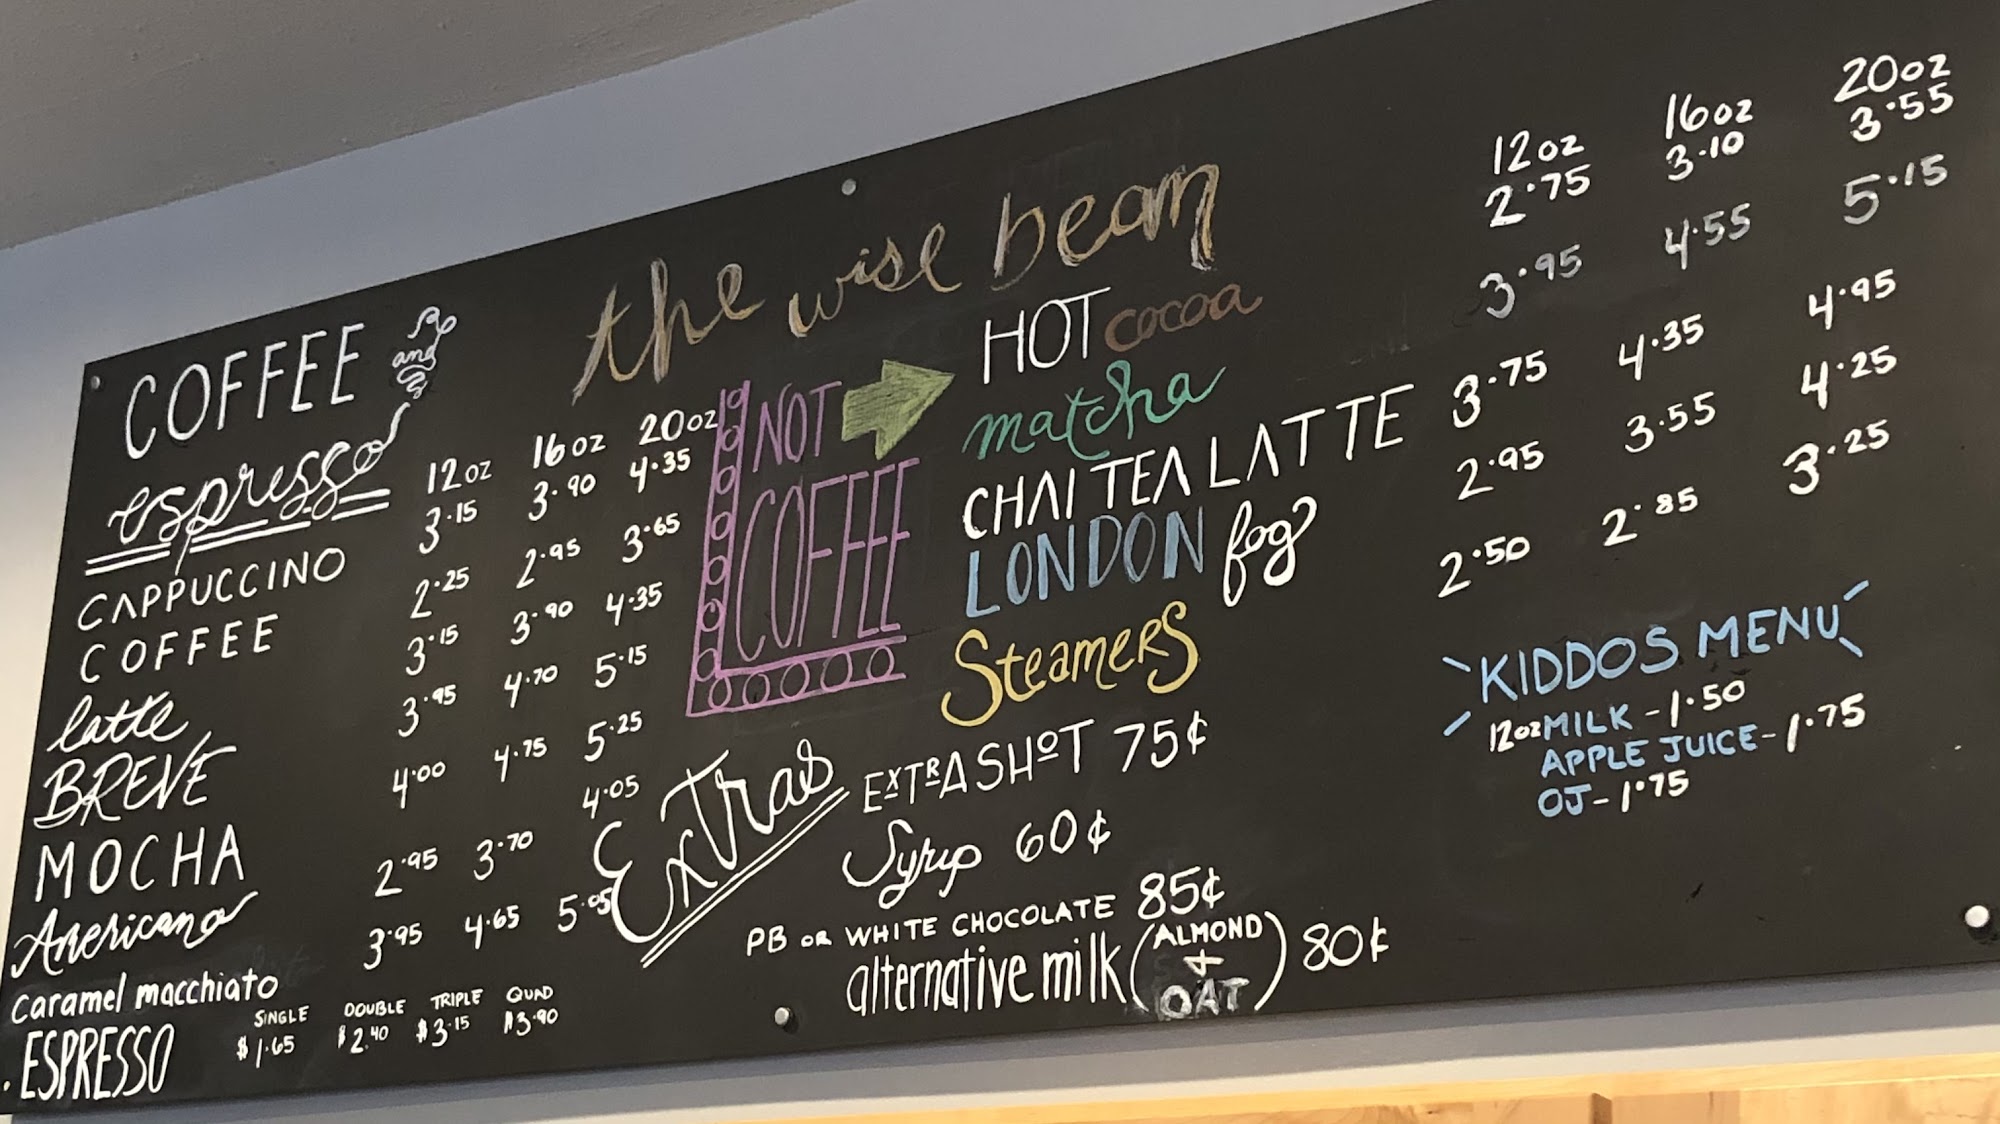 COFFEE and
espresso
12oz 16oz 20oz
CAPPUCCINO 3.15 3.90 4.35
COFFEE 2.25 2.95 3.65
latte 3.15 3.90 4.35
BREVE 3.95 4.70 5.15
MOCHA 4.00 4.75 5.25
Americano 2.95 3.70 4.05
caramel macchiato 3.95 4.65 5.05
SINGLE DOUBLE TRIPLE QUAD
ESPRESSO $1.65 $2.40 $3.15 $3.90
the wise bean
NOT
COFFEE
12oz 16oz 20oz
HOT cocoa 2.75 3.10 3.55
matcha 3.95 4.55 5.15
CHAI TEA LATTE 3.75 4.35 4.95
LONDON fog 2.95 3.55 4.25
Steamers 2.50 2.85 3.25
Extras
EXTRA SHOT 75¢
Syrup 60¢
PB OR WHITE CHOCOLATE 85¢
alternative milk (ALMOND + OAT) 80¢
KIDDOS MENU
12oz MILK - 1.50
APPLE JUICE - 1.75
OJ - 1.75